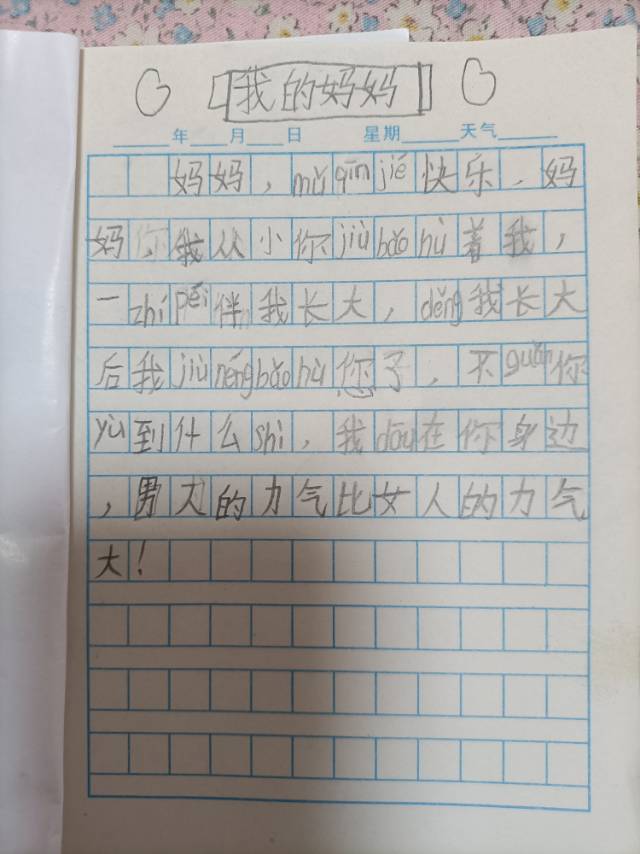 【我的妈妈】
年 月 日 星期 天气
妈妈，mǔ qīn jié 快乐，妈
妈，你我从小你 jiù bǎo hù 着我，
一 zhí péi 伴我长大，děng 我长大
后我 jiù néng bǎo hù 您了，不 guǎn 你
yù 到什么 shì，我 dōu 在你身边
，男人的力气比女人的力气
大！